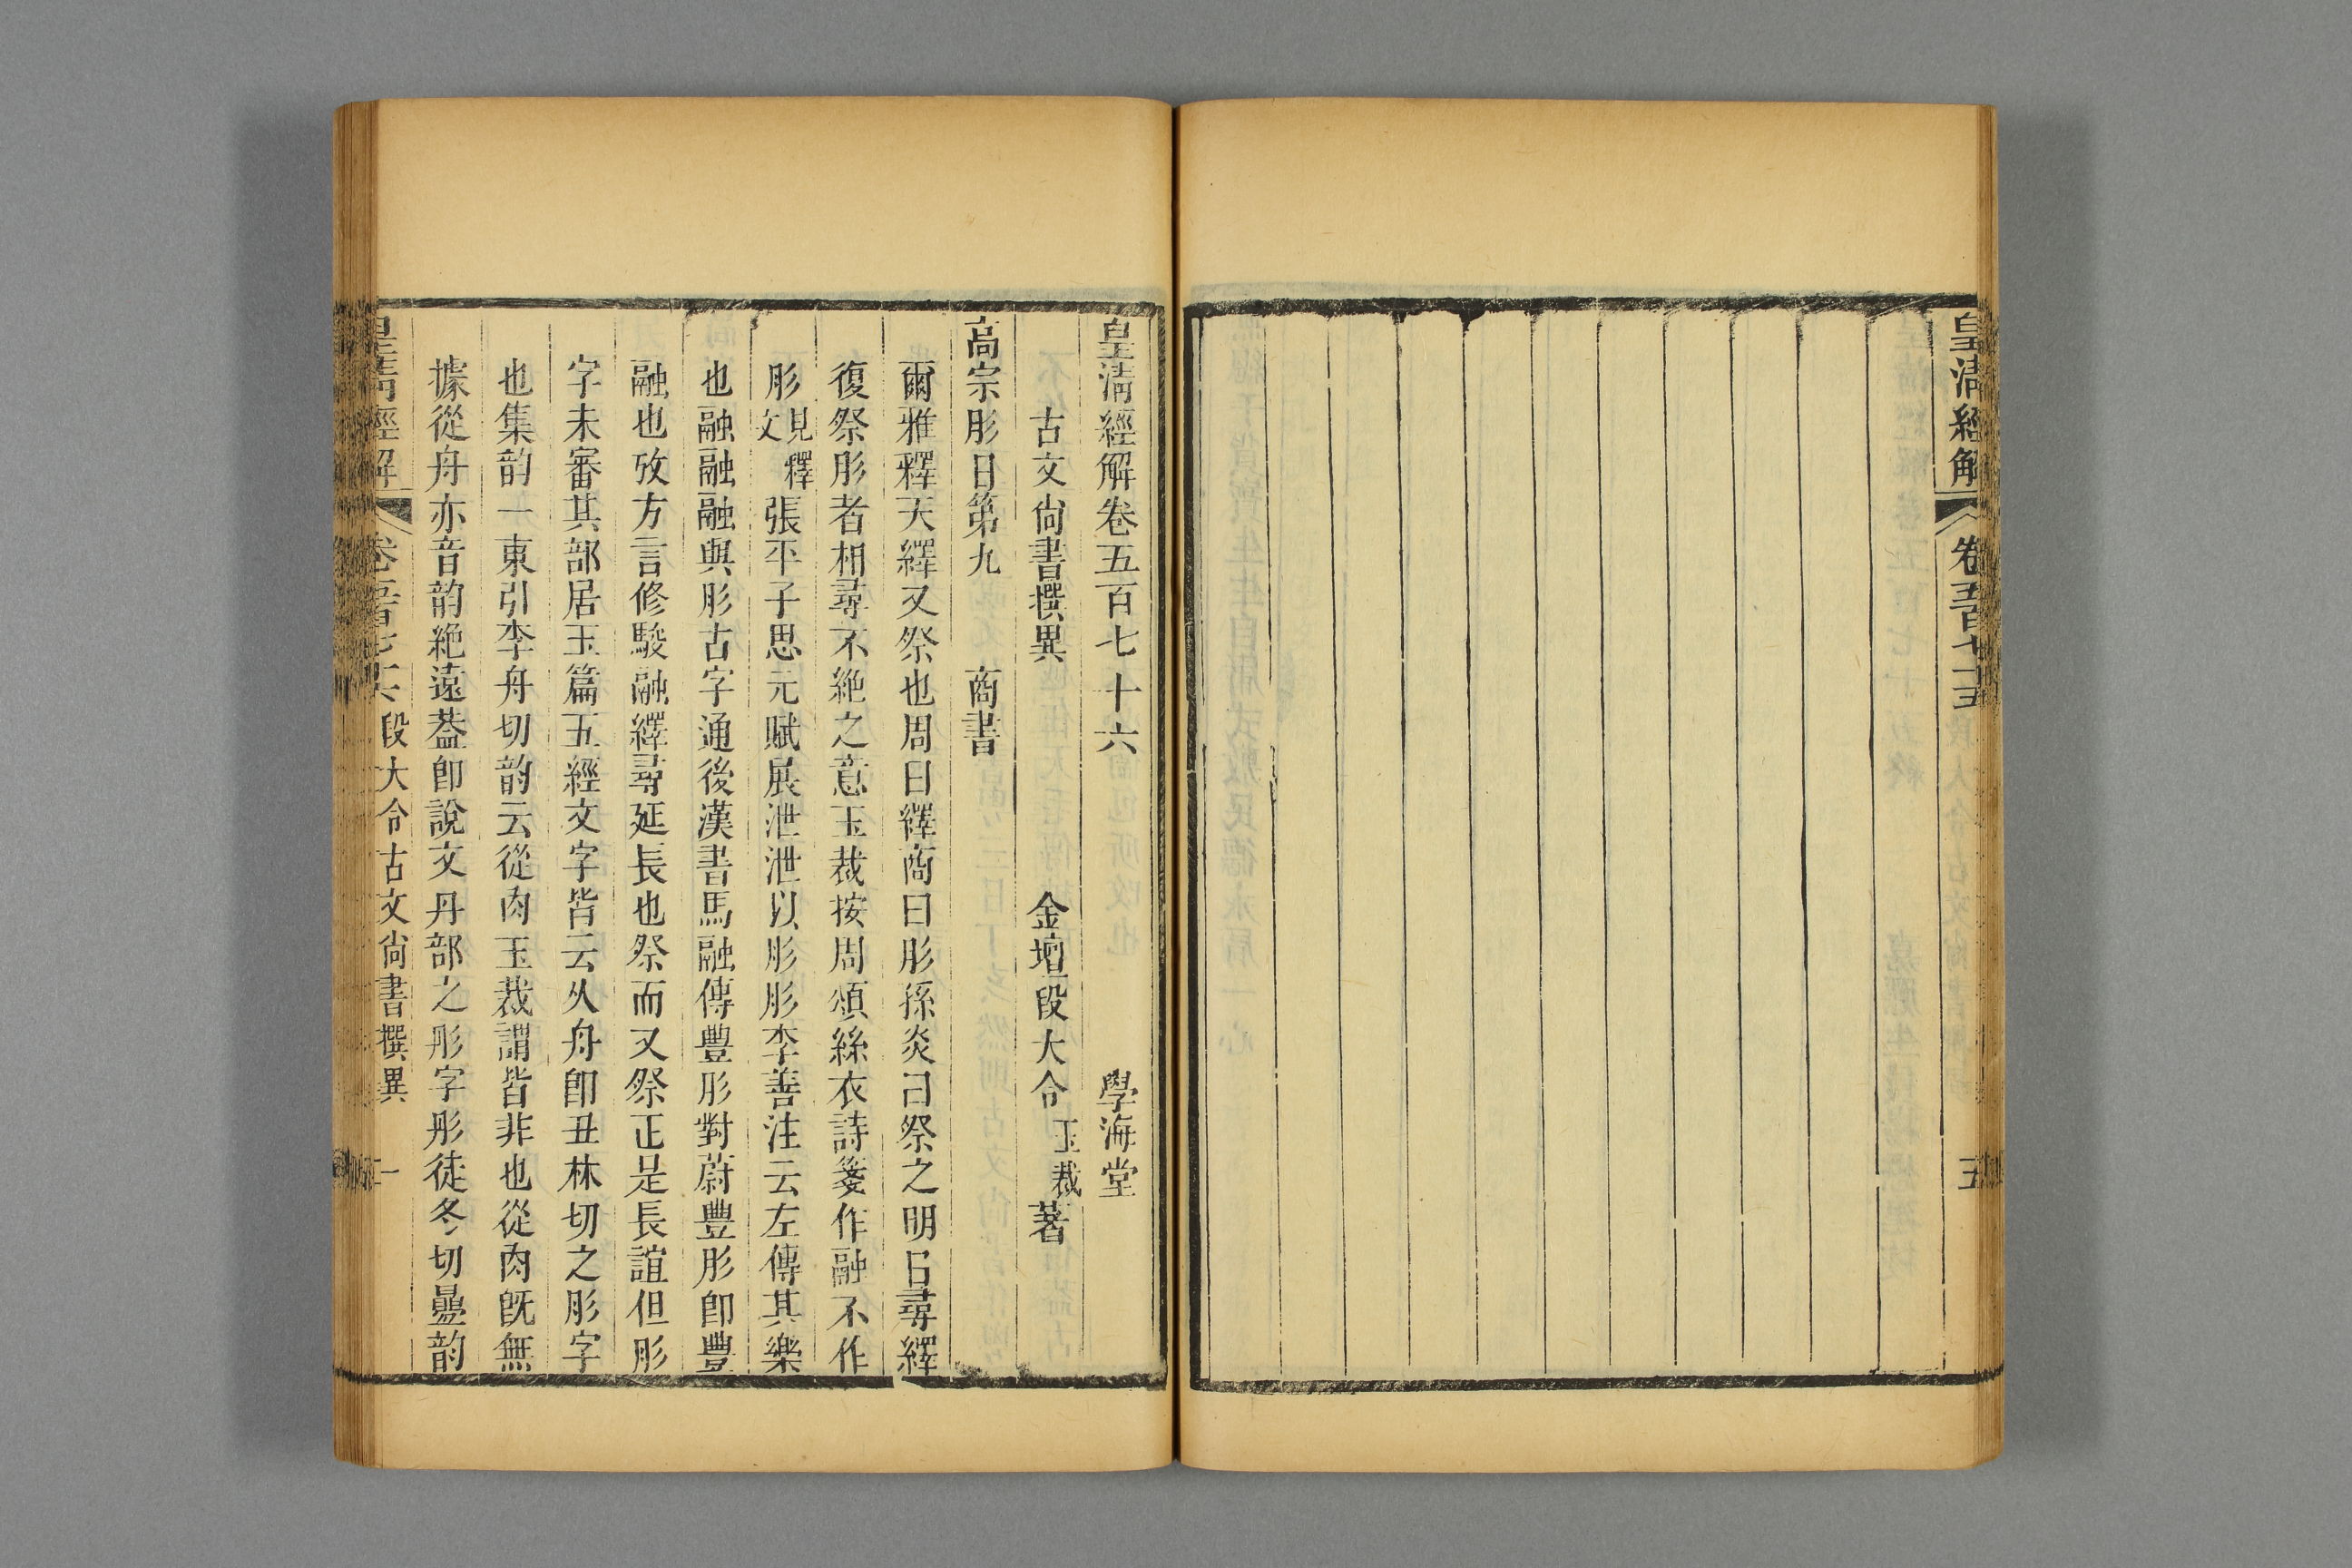 皇清經解 卷五百七十五 五
皇清經解卷五百七十六 學海堂
古文尚書撰異 金壇段大令玉裁著
高宗肜日第九 商書
爾雅釋天繹又祭也周曰繹商曰肜孫炎曰祭之明日尋繹
復祭肜者相尋不絶之意玉裁按周頌絲衣詩箋作融不作
肜見釋文張平子思元賦展泄泄以肜肜李善注云左傳其樂
也融融融與肜古字通後漢書馬融傳豐肜對蔚豐肜卽豐
融也攷方言修駿融繹尋延長也祭而又祭正是長誼但肜
字未審其部居玉篇五經文字皆云从舟卽丑林切之肜字
也集韵一東引李舟切韵云從肉玉裁謂皆非也從肉旣無
據從舟亦音韵絶遠葢卽說文丹部之彤字彤徒冬切曡韵
皇清經解 卷五百七十六 段大令古文尚書撰異 一